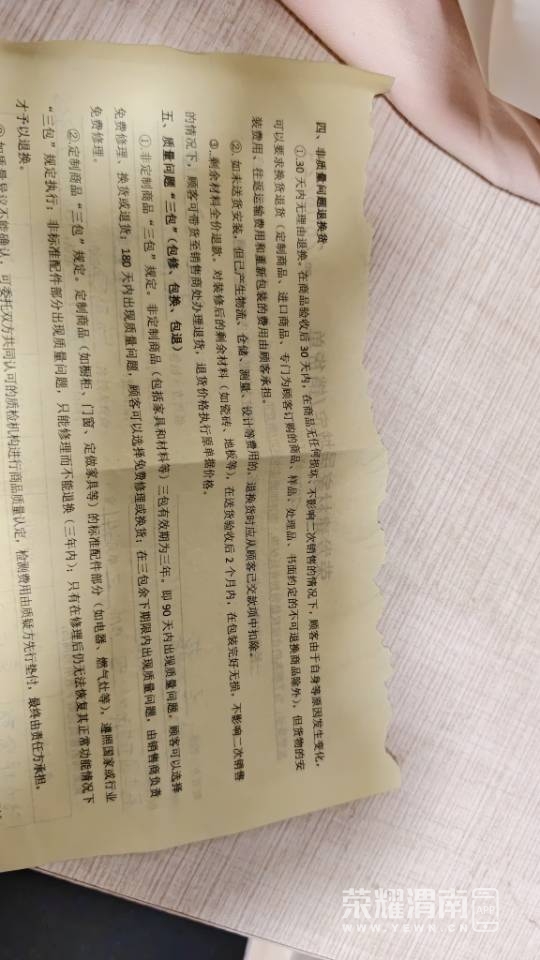 四、非质量问题退换货
①.30 天内无理由退换。在商品验收后 30 天内，在商品无任何损坏、不影响二次销售的情况下，顾客由于自身等原因发生变化，
可以要求换货退货（定制商品、进口商品、专门为顾客订购的商品、样品、处理品、书面约定的不可退换商品除外），但货物的安
装费用、往返运输费用和重新包装的费用由顾客承担。
②.如未送货安装，但已产生物流、仓储、测量、设计等费用的，退换货时应从顾客已交款项中扣除。
③.剩余材料全价退款。对装修后的剩余材料（如瓷砖、地板等），在送货验收后 2 个月内，在包装完好无损，不影响二次销售
的情况下，顾客可带货至销售商处办理退货，退货价格执行原单据价格。
五、质量问题“三包”（包修、包换、包退）
①.非定制商品“三包”规定。非定制商品（包括家具和材料等）三包有效期为三年。即 90 天内出现质量问题，顾客可以选择
免费修理、换货或退货；180 天内出现质量问题，顾客可以选择免费修理或换货；在三包余下期限内出现质量问题，由销售商负责
免费修理。
②.定制商品“三包”规定。定制商品（如橱柜、门窗、定做家具等）的标准配件部分（如电器、燃气灶等），遵照国家或行业
“三包”规定执行；非标准配件部分出现质量问题，只能修理而不能退换（三年内）；只有在修理后仍无法恢复其正常功能情况下
才予以退换。
③.如质量异议不能确认，可委托双方共同认可的质检机构进行商品质量认定，检测费用由质疑方先行垫付，最终由责任方承担。
荣耀渭南 APP
WWW.YEWK.CN